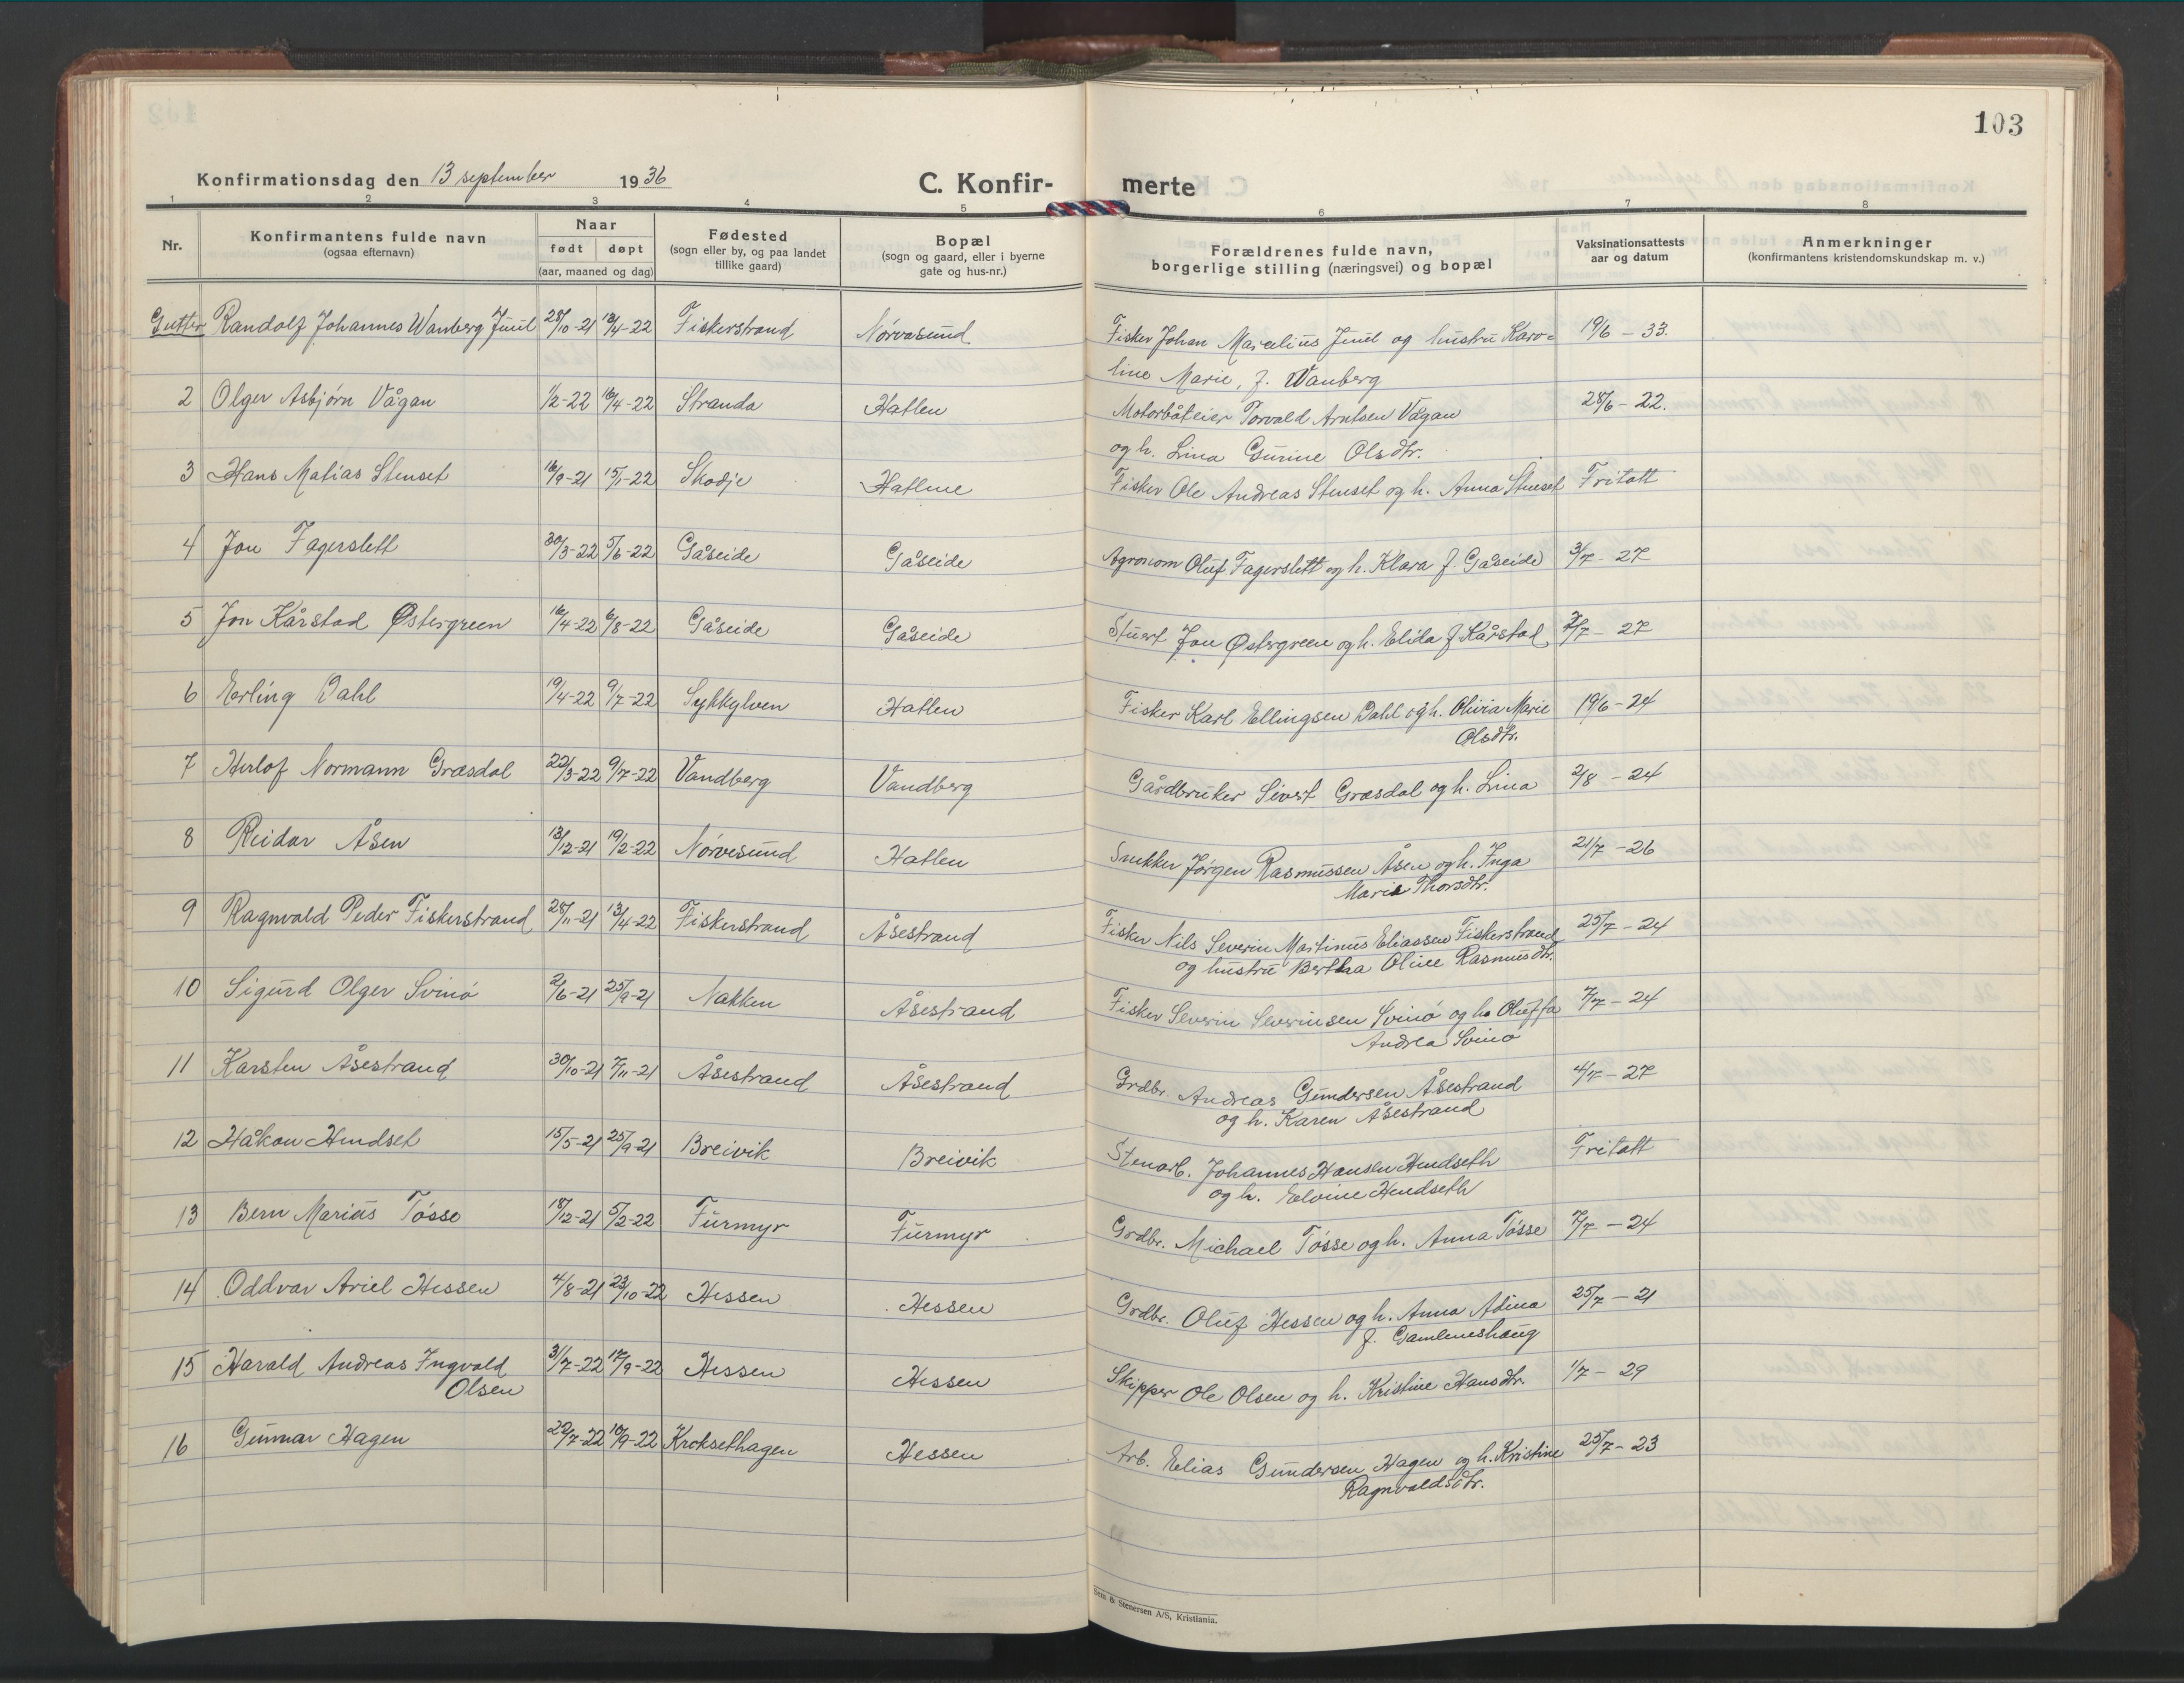 103
Konfirmationsdag den 13 september 1936
C. Konfir-
merte
1 2 3 4 5 6 7 8
Nr.
Konfirmantens fulde navn
(ogsaa efternavn)
Naar
født døpt
(aar, maaned og dag)
Fødested
(sogn eller by, og paa landet
tillike gaard)
Bopæl
(sogn og gaard, eller i byerne
gate og hus-nr.)
Forældrenes fulde navn,
borgerlige stilling (næringsvei) og bopæl
Vaksinationsattests
aar og datum
Anmerkninger
(konfirmantens kristendomskundskap m. v.)
Gutter Randolf Johannes Wanberg Juul 28/10-21 13/4-22 Fiskerstrand Nörvasund Fisker Johan Marcelius Juul og hustru Karo= 19/6 - 33.
line Marie, f. Wanberg
2 Olger Asbjørn Vågan 1/2-22 16/4-22 Stranda Hatlen Motorbåteier Torvald Arntsen Vågan 28/6 - 22.
og h. Lina Gurine Olsdtr.
3 Hans Matias Stenset 16/9-21 15/1-22 Skodje Hatlene Fisker Ole Andreas Stenset og h. Anna Stenset Fritatt
4 Jon Fagerslett 30/3-22 5/6-22 Gåseide Gåseide Agronom Oluf Fagerslett og h. Klara f. Gåseide 3/7 - 27
5 Jon Kårstad Østergreen 16/4-22 6/8-22 Gåseide Gåseide Stuert Jon Østergreen og h. Elida f. Kårstad /7 - 27
6 Erling Dahl 19/4-22 9/7-22 Sykkylven Hatlen Fisker Karl Ellingsen Dahl og h. Olivia Marie 19/6 - 24
Olsdtr.
7 Herlof Normann Græsdal 22/3-22 9/7-22 Vandberg Vandberg Gårdbruker Sivert Græsdal og h. Lina 2/8 - 24
8 Reidar Åsen 13/12-21 19/2-22 Nörvesund Hatlen Snekker Jörgen Rasmussen Åsen og h. Inga 21/7 - 26
Marie Thorsdtr.
9 Ragnvald Peder Fiskerstrand 28/11-21 13/4-22 Fiskerstrand Åsestrand Fisker Nils Severin Martinus Eliassen Fiskerstrand 25/7 - 24
og hustru Berthe Oline Rasmusdtr.
10 Sigurd Olger Svinö 2/6-21 25/9-21 Nakken Åsestrand Fisker Severin Severinsen Svinö og h. Oluffa 7/7 - 24
Andrea Svinö
11 Karsten Åsestrand 30/10-21 7/11-21 Åsestrand Åsestrand Grdbr. Andreas Gundersen Åsestrand 4/7 - 27
og h. Karen Åsestrand
12 Håkon Hendset 15/5-21 25/9-21 Breivik Breivik Stenarb. Johannes Hansen Hendseth Fritatt
og h. Elvine Hendseth
13 Bern Marius Tösse 18/12-21 5/2-22 Furmyr Furmyr Grdbr. Michael Tösse og h. Anna Tösse 7/7 - 24
14 Oddvar Ariel Hessen 4/8-21 23/10-22 Hessen Hessen Grdbr. Oluf Hessen og h. Anna Adina 25/7 - 21
f. Gamleneshaug
15 Harald Andreas Ingvald 31/7-22 17/9-22 Hessen Hessen Skipper Ole Olsen og h. Kristine Hansdtr. 1/7 - 29
Olsen
16 Gunnar Hagen 22/7-22 10/9-22 Kroksethagen Hessen Arb. Elias Gundersen Hagen og h. Kristine 25/7 - 23
Ragnvaldsdtr.
& Stenersen A/S, Kristiania.